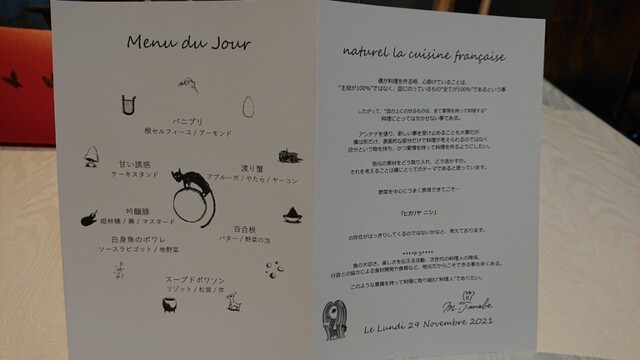 Menu du Jour
パニプリ
根セルフィーユ/アーモンド
甘い誘惑
ケーキスタンド
渡り蟹
アブルーガ/やたら/ヤーコン
吟醸豚
姫林檎/蕪/マスタード
百合根
バター/野菜の泡
白身魚のポワレ
ソースラビゴット/地野菜
スープドポワソン
リゾット/松茸/芹
naturel la cuisine française
僕が料理を作る時、心掛けていることは、
"主役が100%"ではなく、皿にのっているもの"全てが100%"であるという事
したがって、"皿の上にのせるものは、全て愛情を持って料理する"
料理にとっては欠かせない事である。
アンテナを張り、新しい事を受け止めることも大事だが、
僕は形だけ、表面的な部分だけで料理が考えられるのではなく
自分という物を持ち、かつ愛情を持って料理を作るようにしたい。
地元の素材をどう取り入れ、どう活かすか。
それを考えることは僕にとってのテーマであると思っています。
野菜を中心にうまく表現できてこそ…
「ヒカリヤ ニシ」
の存在がはっきりしてくるのではないかなと、考えております。
****P.S****
食の大切さ、楽しさを伝える活動、次世代の料理人の育成、
行政との協力による食材開発や食育など、地元だからこそできる事も多くある。
このような意識を持って料理に取り組む"料理人"でありたい。
M. Tanabe
Le Lundi 29 Novembre 2021